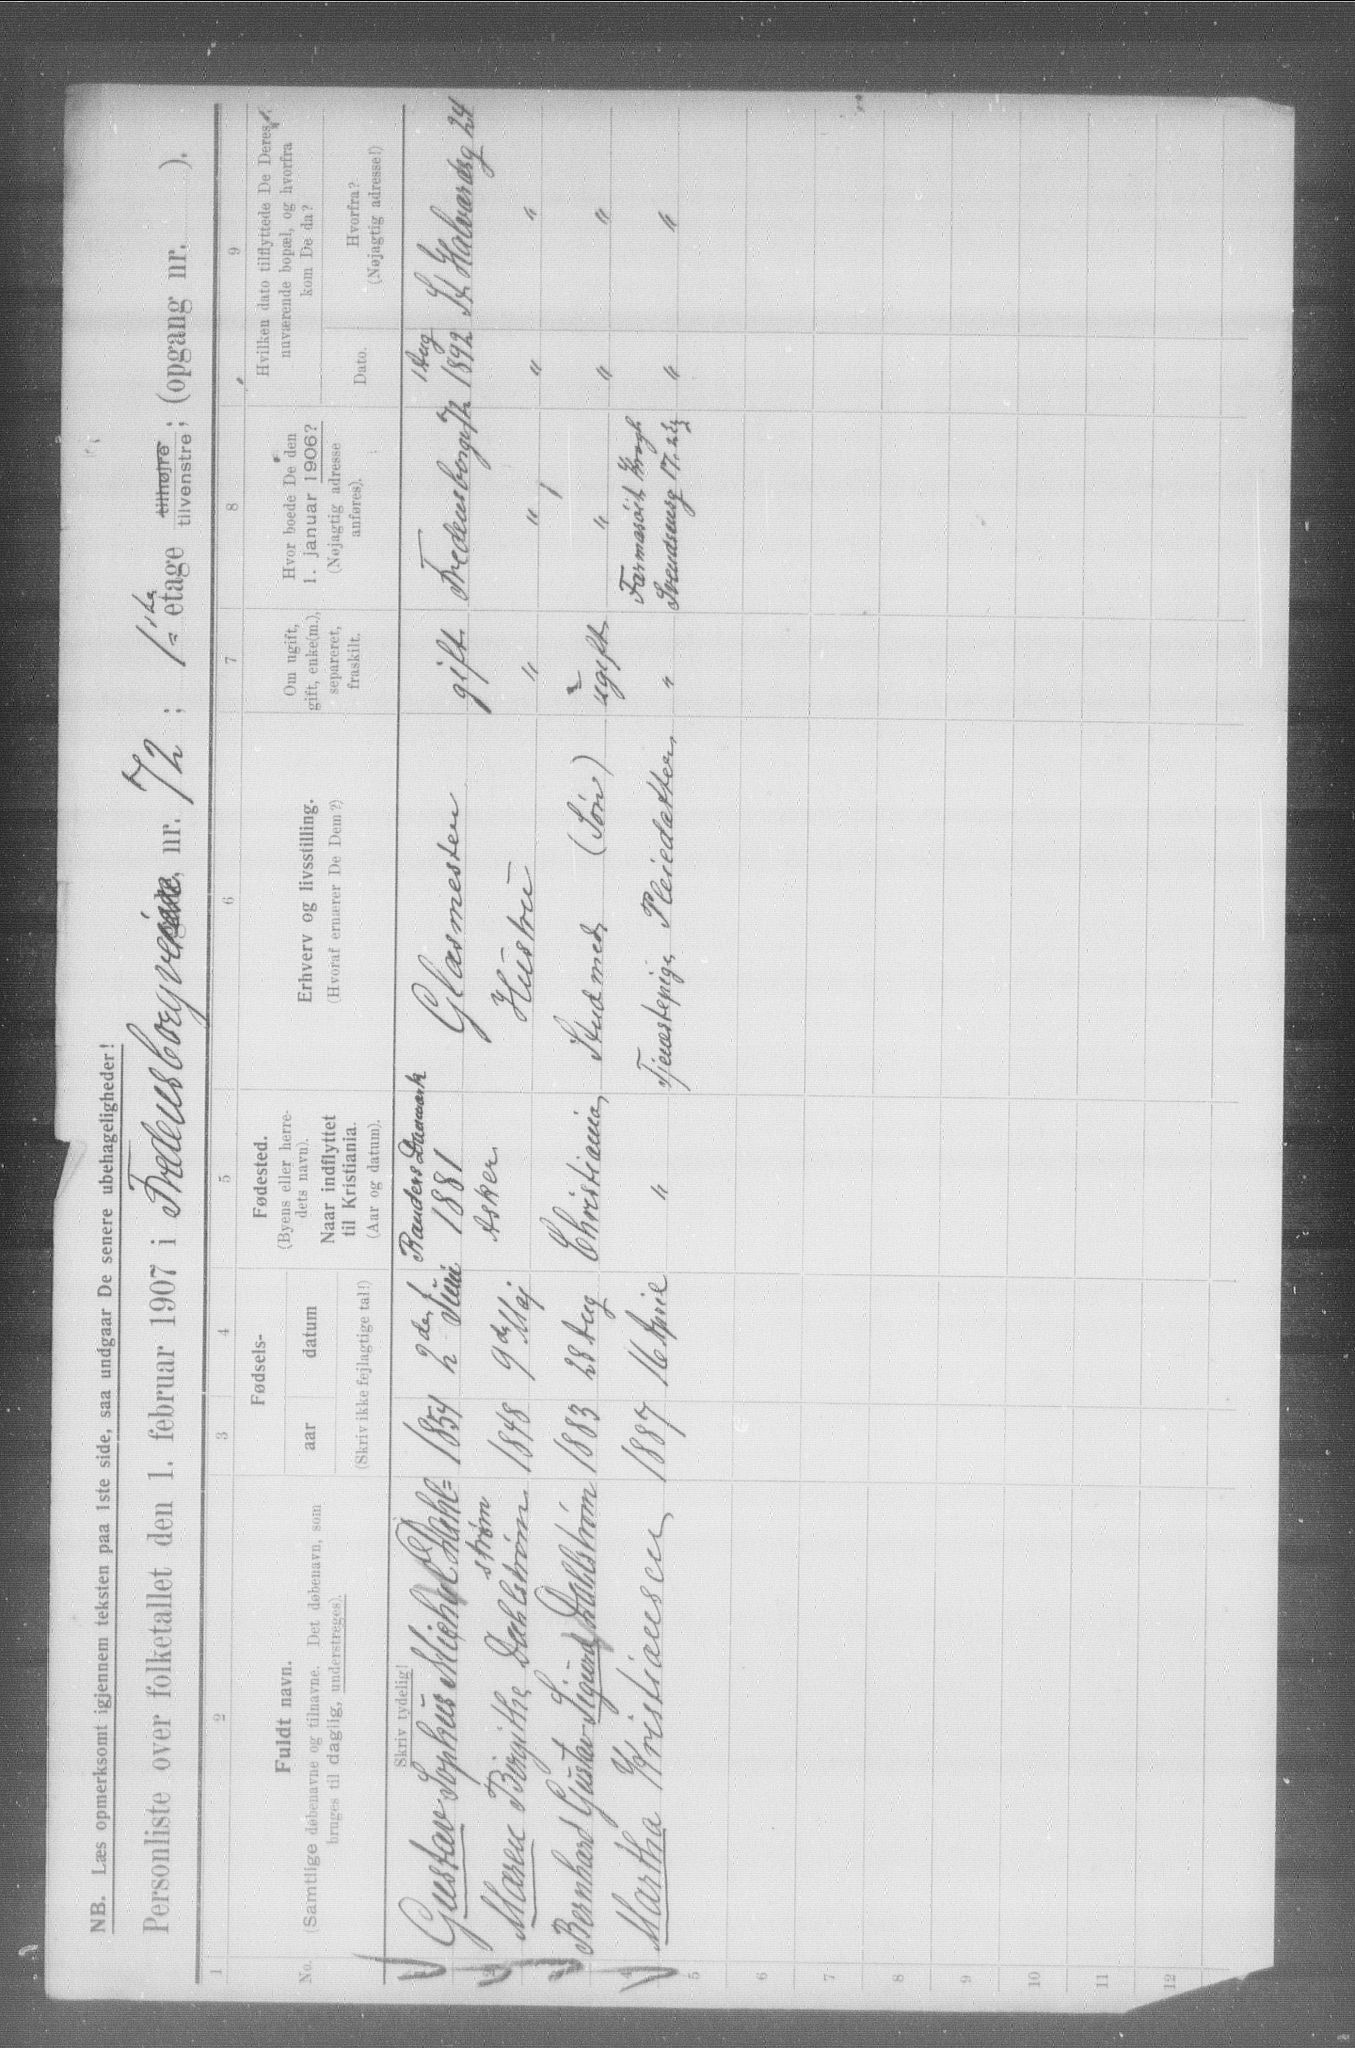 NB. Læs opmerksomt igjennem teksten paa 1ste side, saa undgaar De senere ubehageligheder!
Personliste over folketallet den 1. februar 1907 i Fredensborgveien, nr. 72; 1ste etage tilhøjre tilvenstre; (opgang nr. ).
1 2 3 4 5 6 7 8 9
No.
Fuldt navn.
(Samtlige døbenavne og tilnavne. Det døbenavn, som
bruges til daglig, understreges).
Fødsels-
aar datum
(Skriv ikke fejlagtige tal!)
Fødested.
(Byens eller herre-
dets navn).
Naar indflyttet
til Kristiania.
(Aar og datum).
Erhverv og livsstilling.
(Hvoraf ernærer De Dem?)
Om ugift,
gift, enke(m.),
separeret,
fraskilt.
Hvor boede De den
1. januar 1906?
(Nøjagtig adresse
anføres).
Hvilken dato tilflyttede De Deres
nuværende bopæl, og hvorfra
kom De da?
Dato.
Hvorfra?
(Nøjagtig adresse!)
Skriv tydelig!
Randers Danmark 1 Aug
1 Gustav Sophus Michael Dahl= 1854 2den Juni 1881 Glasmester gift Fredensborgv 72 1892 St Halvardsg 24
strøm
2 Maren Birgithe Dahlstrøm 1848 9de Maj Asker Hustru " " " "
3 Bernhard Gustav Sigurd Dahlstrøm 1883 28 Aug Christiania Stud med (Søn) ugift " " "
4 Martha Kristiansen 1887 16 April " Tjenestepige Pleiedatter " Krogh
Svendsensg 17 " "
5
6
7
8
9
10
11
12